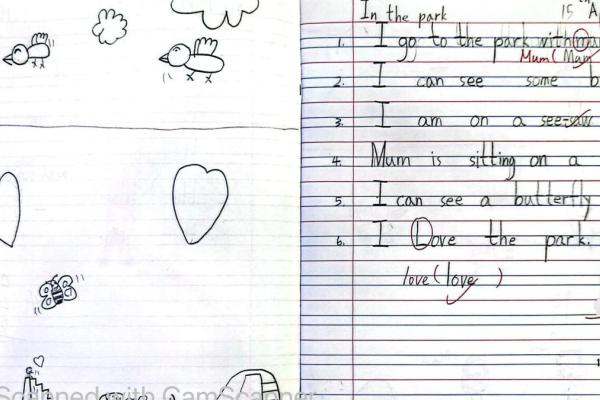 In the park 15
1. I go to the park with
Mum ( Mum
2. I can see some b
3. I am on a see-saw
4. Mum is sitting on a
5. I can see a butterfly
6. I Love the park.
love ( love )
Scanned with CamScanner